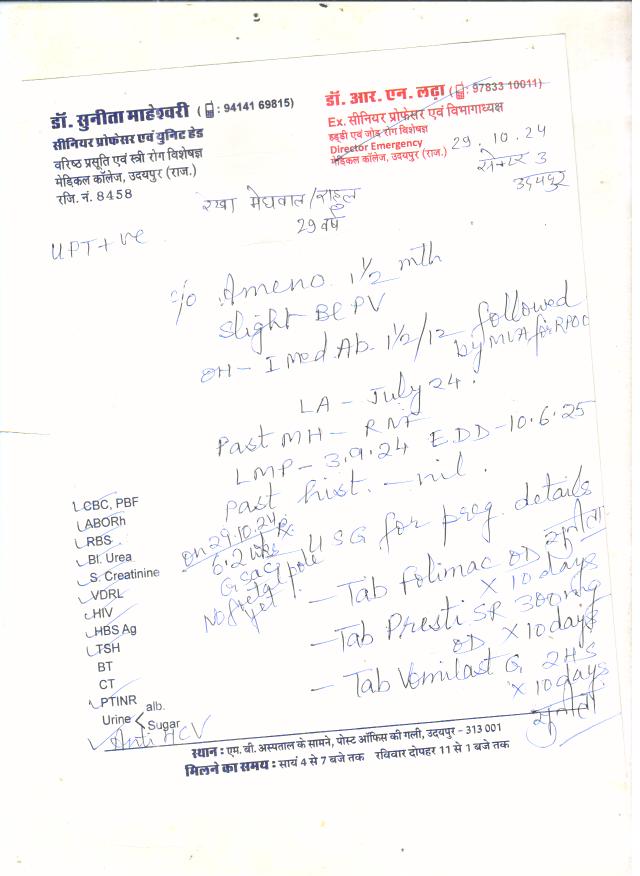 डॉ. सुनीता माहेश्वरी (📱: 94141 69815)
सीनियर प्रोफेसर एवं यूनिट हेड
वरिष्ठ प्रसूति एवं स्त्री रोग विशेषज्ञ
मेडिकल कॉलेज, उदयपुर (राज.)
रजि. नं. 8458
डॉ. आर. एन. लढ़ा (📱: 97833 10011)
Ex. सीनियर प्रोफेसर एवं विभागाध्यक्ष
हड्डी एवं जोड़ रोग विशेषज्ञ
Director Emergency
मेडिकल कॉलेज, उदयपुर (राज.)
29.10.24
सेक्टर 3
उदयपुर
रेखा मेघवाल/राहुल
29 वर्ष
UPT+ve
c/o Ameno. 1½ mth
slight Bl PV
OH - I Med. Ab. 1½/12 followed
by MVA for RPOC
LA - July 24.
Past MH - RNF
LMP - 3.9.24 E.DD - 10.6.25
Past hist. - nil.
CBC, PBF
ABORh
RBS
Bl. Urea
S. Creatinine
VDRL
HIV
HBS Ag
TSH
BT
CT
PTINR
Urine alb.
Sugar
Anti HCV
on 29.10.24
6.2 wks
G sac
No fetal pole
yet
Rx
USG for preg. details
सुनीता
- Tab Folimac OD
x 10 days
- Tab Presti SR 300mg
OD x 10 days
- Tab Vomilast G 2HS
x 10 days
सुनीता
स्थान : एम. बी. अस्पताल के सामने, पोस्ट ऑफिस की गली, उदयपुर - 313 001
मिलने का समय : सायं 4 से 7 बजे तक रविवार दोपहर 11 से 1 बजे तक